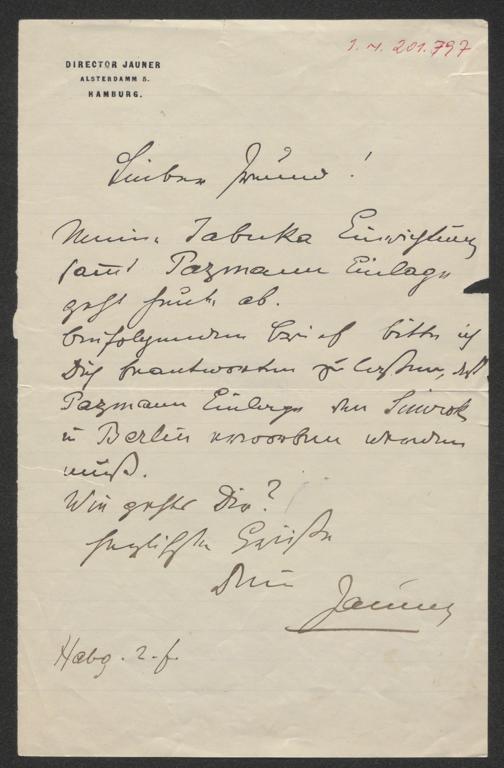 I. N. 201.797
DIRECTOR JAUNER
ALSTERDAMM 5.
HAMBURG.
Lieber Freund!
Meine Jabuka Einrichtung
samt Pazmann Einlage
geht heute ab.
beifolgenden Brief bitte ich
Dich beantworten zu lassen, daß
Pazmann Einlage von Simrok
in Berlin erworben werden
muß.
Wie geht's Dir?
herzlichste Grüße
Dein Jauner
Habg. 2. f.